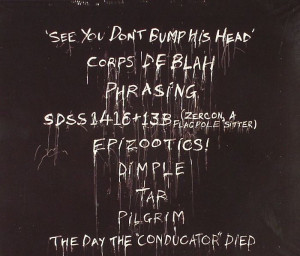 'SEE YOU DON'T BUMP HIS HEAD'
CORPS DE BLAH
PHRASING
SDSS1416+13B (ZERCON, A
FLAGPOLE SITTER)
EPIZOOTICS!
DIMPLE
TAR
PILGRIM
THE DAY THE "CONDUCATOR" DIED